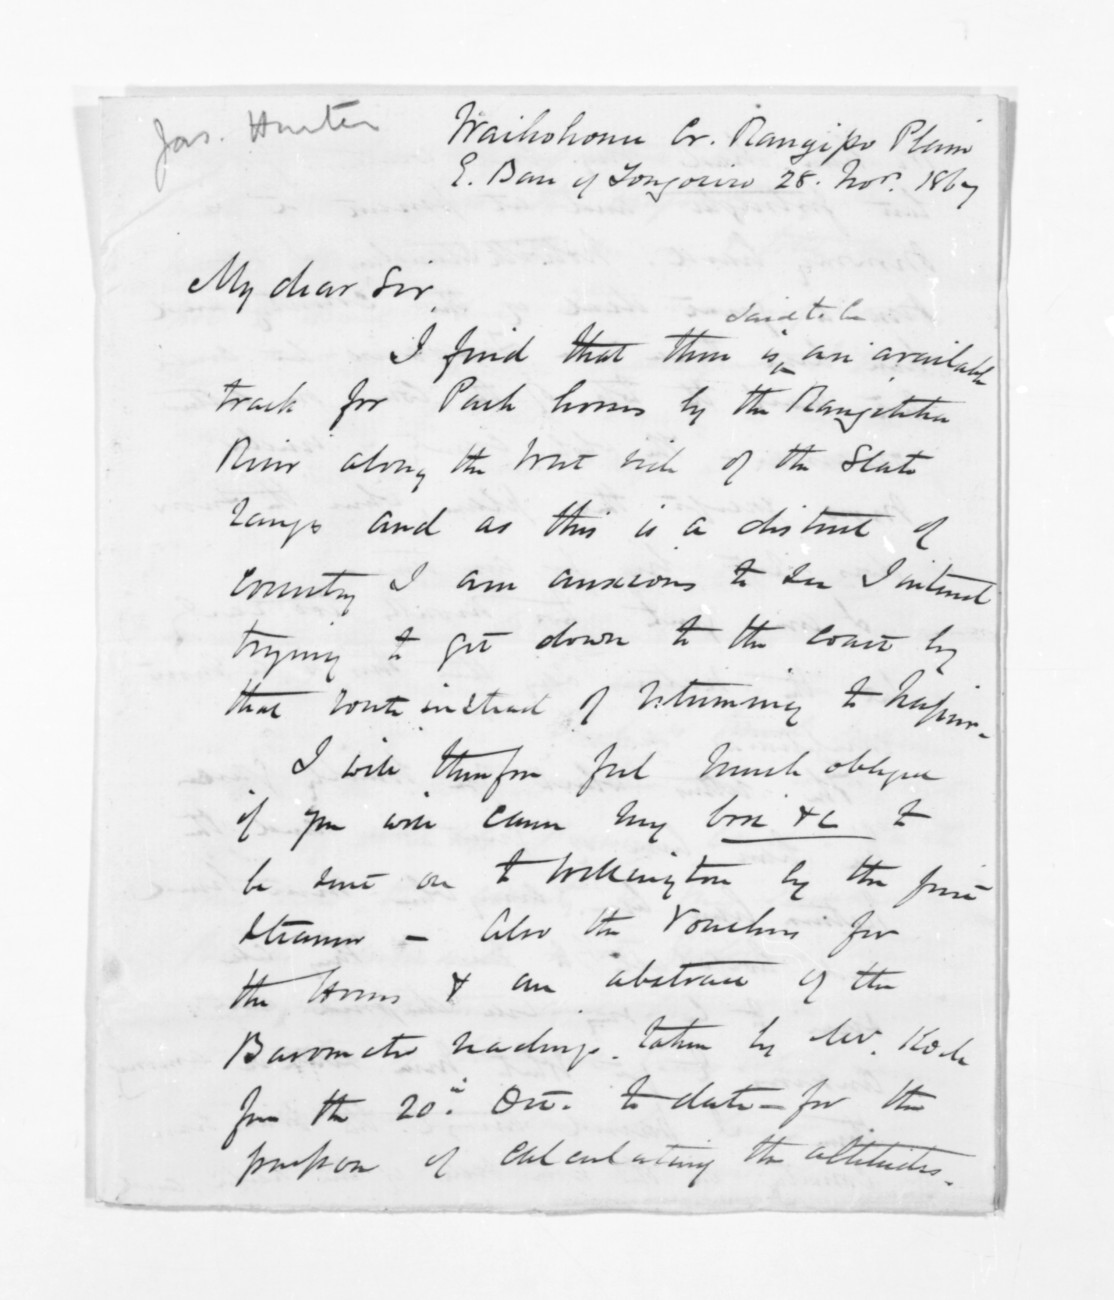 Jas. Hunter
Waikohonu Cr. Rangipo Plain
E. Base of Tongoriro 28. Nov. 1867
My dear Sir,
said to be
I find that there is an available
track for Pack horses by the Rangitikei
River along the West side of the Slate
range and as this is a district of
country I am anxious to see I intend
trying to get down to the coast by
that route instead of returning to Napier.
I will therefore feel much obliged
if you will cause my box &c to
be sent on to Wellington by the first
steamer - Also the Vouchers for
the Horses & an abstract of the
Barometer readings taken by Mr. Koch
from the 20th Oct. to date - for the
purpose of calculating the altitudes.